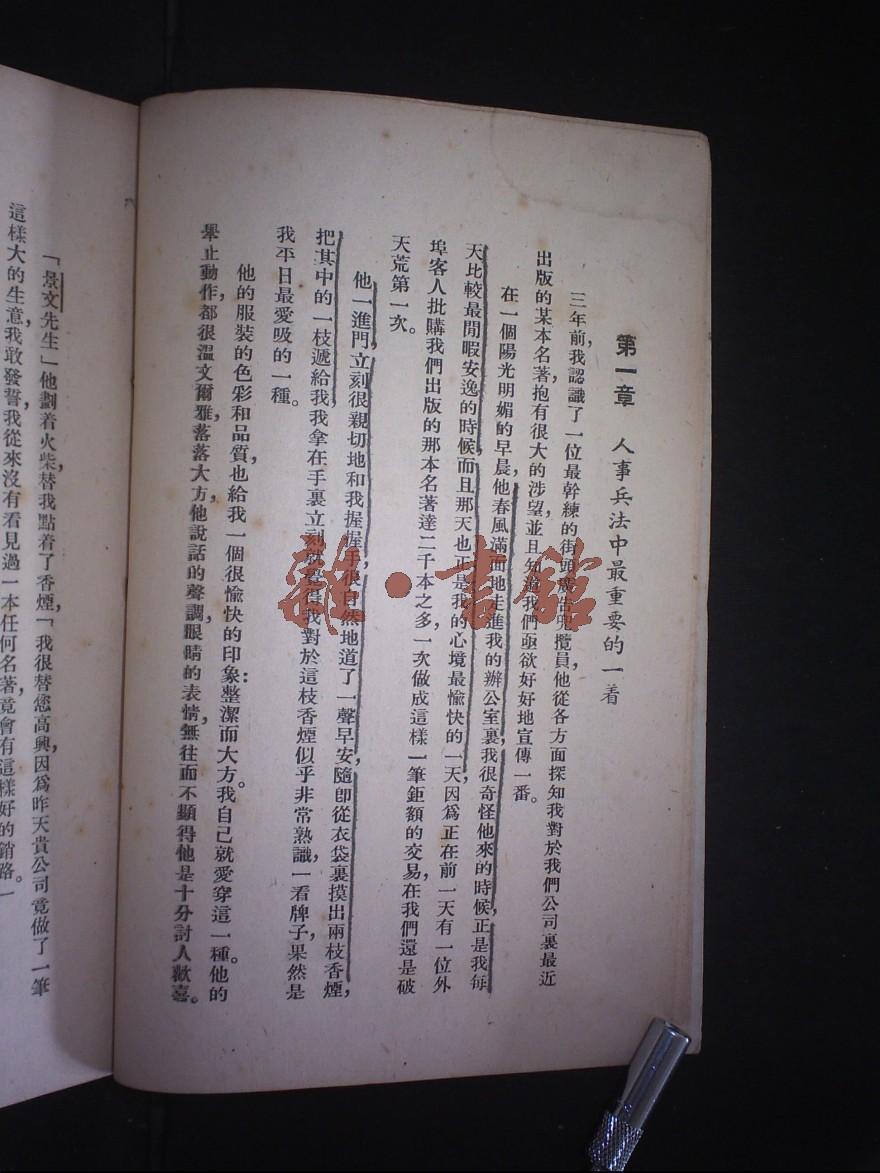 第一章　人事兵法中最重要的一着
三年前，我認識了一位最幹練的街頭廣告兜攬員，他從各方面探知我對於我們公司裏最近
出版的某本名著抱有很大的涉望，並且知道我們亟欲好好地宣傳一番。
在一個陽光明媚的早晨，他春風滿面地走進我的辦公室裏，我很奇怪他來的時候，正是我每
天比較最閒暇安逸的時候，而且那天也正是我的心境最愉快的一天，因爲正在前一天有一位外
埠客人批購我們出版的那本名著達二千本之多，一次做成這樣一筆鉅額的交易，在我們還是破
天荒第一次。
他一進門，立刻很親切地和我握握手，很自然地道了一聲早安，隨卽從衣袋裏摸出兩枝香煙，
把其中的一枝遞給我，我拿在手裏立刻就覺得我對於這枝香煙似乎非常熟識，一看牌子，果然是
我平日最愛吸的一種。
他的服裝的色彩和品質，也給我一個很愉快的印象：整潔而大方。我自己就愛穿這一種。他的
舉止動作，都很溫文爾雅，落落大方，他說話的聲調，眼睛的表情，無往而不顯得他是十分討人歡喜。
「景文先生」他劃着火柴，替我點着了香煙，「我很替您高興，因爲昨天貴公司竟做了一筆
這樣大的生意，我敢發誓，我從來沒有看見過一本任何名著，竟會有這樣好的銷路。
雜·書館